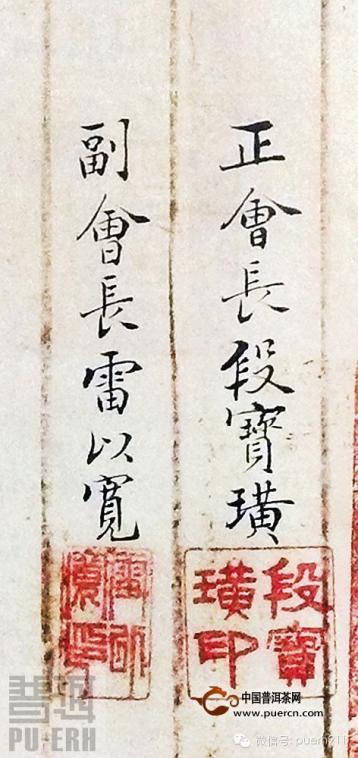 正會長段寶璜
段寶璜印
副會長雷以寬
雷以寬印
普洱
PU-ERH
中国普洱茶网
www.puercn.com
微信号: